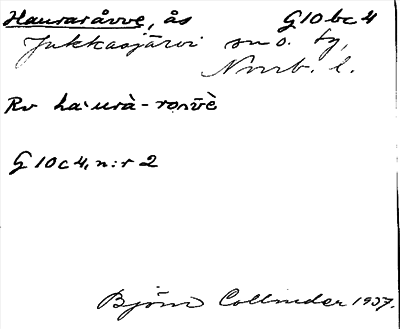 Hauraråvve, ås G10bc4
Jukkasjärvi sn o. tg,
Norrb. l.
Rv
G10c4, n:r 2
Björn Collinder 1937.